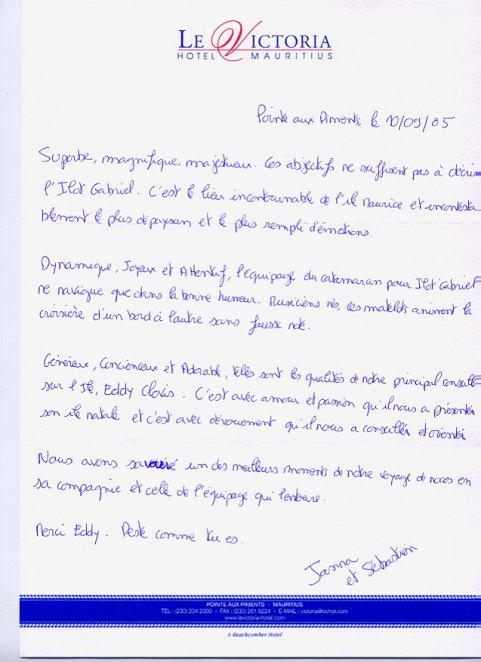 LE VICTORIA
HOTEL MAURITIUS
Pointe aux Piments le 10/09/05
Superbe, magnifique, majestueux. Ces adjectifs ne suffisent pas à décrire
l'Ilot Gabriel. C'est le lieu incontournable de l'île Maurice et incontesta
blement le plus dépaysan et le plus rempli d'émotions.
Dynamique, Joyeux et Attentif, l'équipage du catamaran pour Ilot Gabriel
ne navigue que dans la bonne humeur. Musiciens nés, ces matelots animent la
croisière d'un bord à l'autre sans fausse note.
Généreux, Concienceux et Adorable, telles sont les qualités de notre principal conseill
sur l'île, Eddy Clovis. C'est avec amour et passion qu'il nous a présenter
son île natale et c'est avec dévouement qu'il nous a conseiller et orienter
Nous avons savouré un des meilleurs moments de notre voyage de noces en
sa compagnie et celle de l'équipage qui l'entoure.
Merci Eddy. Reste comme tu es.
Janna
et Sébastien
POINTE AUX PIMENTS - MAURITIUS
TEL : (230) 204 2000 - FAX : (230) 261 8224 - E-MAIL :
www.levictoria-hotel.com
A Beachcomber Hotel